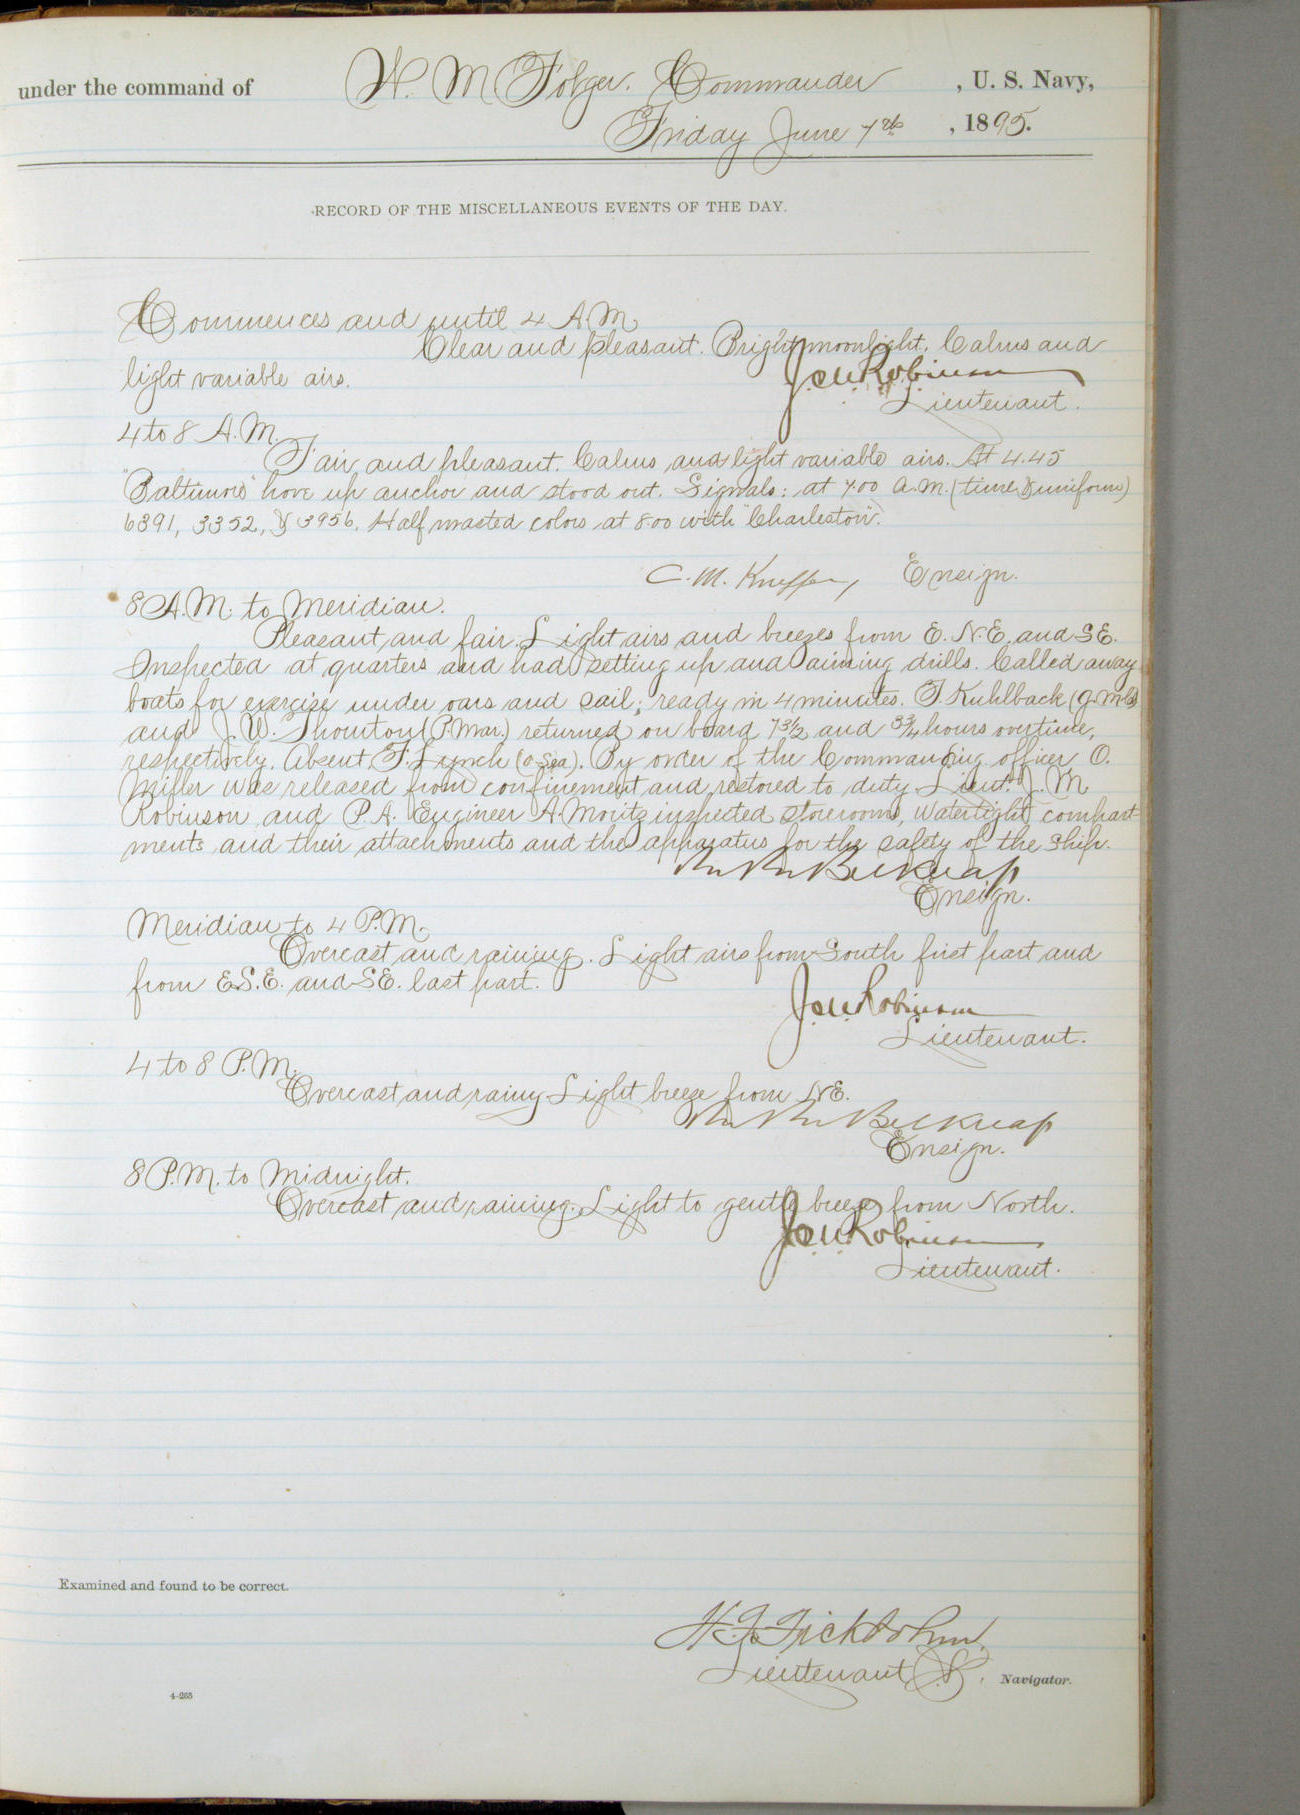 under the command of W. M. Folger. Commander, U. S. Navy,
Friday June 7th, 1895.
RECORD OF THE MISCELLANEOUS EVENTS OF THE DAY.
Commences and until 4 A.M.
Clear and pleasant. Bright moonlight. Calms and
light variable airs.
J. M. Robinson
Lieutenant.
4 to 8 A.M.
Fair and pleasant. Calms and light variable airs. At 4.45
"Baltimore" hove up anchor and stood out. Signals: at 7.00 A.M. (time & uniform)
6391, 3352, & 3956. Half masted colors at 8.00 with "Charleston".
C. M. Ensign.
8 A.M. to Meridian.
Pleasant and fair. Light airs and breezes from E.N.E. and SE.
Inspected at quarters and had setting up and aiming drills. Called away
boats for exercise under oars and sail; ready in 4 minutes. F. Kuhlback
and J. W. Thornton (P. Mar.) returned on board 73½ and hours overtime,
respectively. Absent F. Lynch (O. Sea). By order of the Commanding officer, O.
Miller was released from confinement and restored to duty. Lieut. J. M.
Robinson and P. A. Engineer A. Moritz inspected storerooms, watertight compart
ments and their attachments and the apparatus for the safety of the ship.
R. R. Belknap
Ensign.
Meridian to 4 P.M.
Overcast and raining. Light airs from South first part and
from E.S.E. and SE. last part.
J. M. Robinson
Lieutenant.
4 to 8 P.M.
Overcast and rainy. Light breeze from NE.
R. R. Belknap
Ensign.
8 P.M. to Midnight.
Overcast and raining. Light to gentle breeze from North.
J. M. Robinson
Lieutenant.
Examined and found to be correct.
H. F. Fickbohm
Lieutenant &, Navigator.
4-265